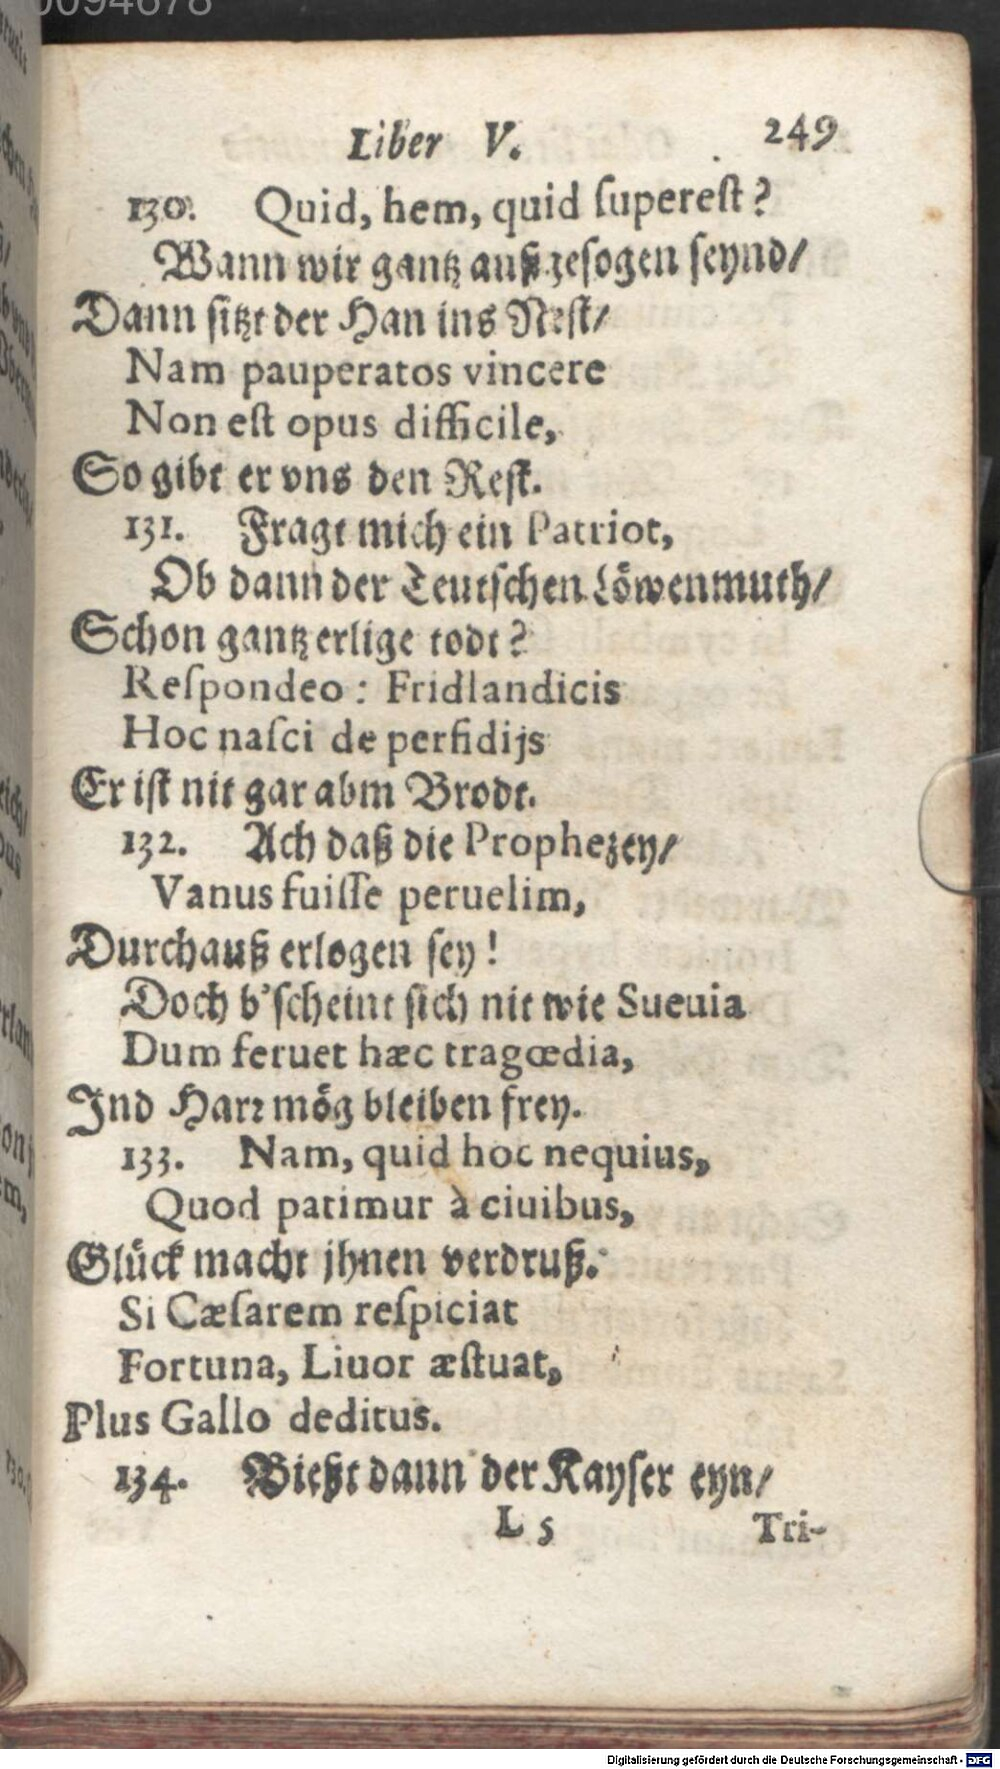 0094678
Liber V. 249
130. Quid, hem, quid ſupereſt?
Wann wir gantz außgeſogen ſeynd/
Dann ſitzt der Han ins Neſt/
Nam pauperatos vincere
Non eſt opus difficile,
So gibt er vns den Reſt.
131. Fragt mich ein Patriot,
Ob dann der Teutſchen Löwenmuth/
Schon gantz erlige todt?
Reſpondeo: Fridlandicis
Hoc naſci de perfidijs
Er iſt nit gar abm Brodt.
132. Ach daß die Prophezey/
Vanus fuiſſe peruelim,
Durchauß erlogen ſey!
Doch b'ſcheint ſich nit wie Sueuia
Dum feruet hæc tragœdia,
Ind Harr mög bleiben frey.
133. Nam, quid hoc nequius,
Quod patimur à ciuibus,
Glück macht jhnen verdruß.
Si Cæſarem reſpiciat
Fortuna, Liuor æſtuat,
Plus Gallo deditus.
134. Bießt dann der Kayſer eyn/
L 5 Tri-
Digitalisierung gefördert durch die Deutsche Forschungsgemeinschaft - DFG